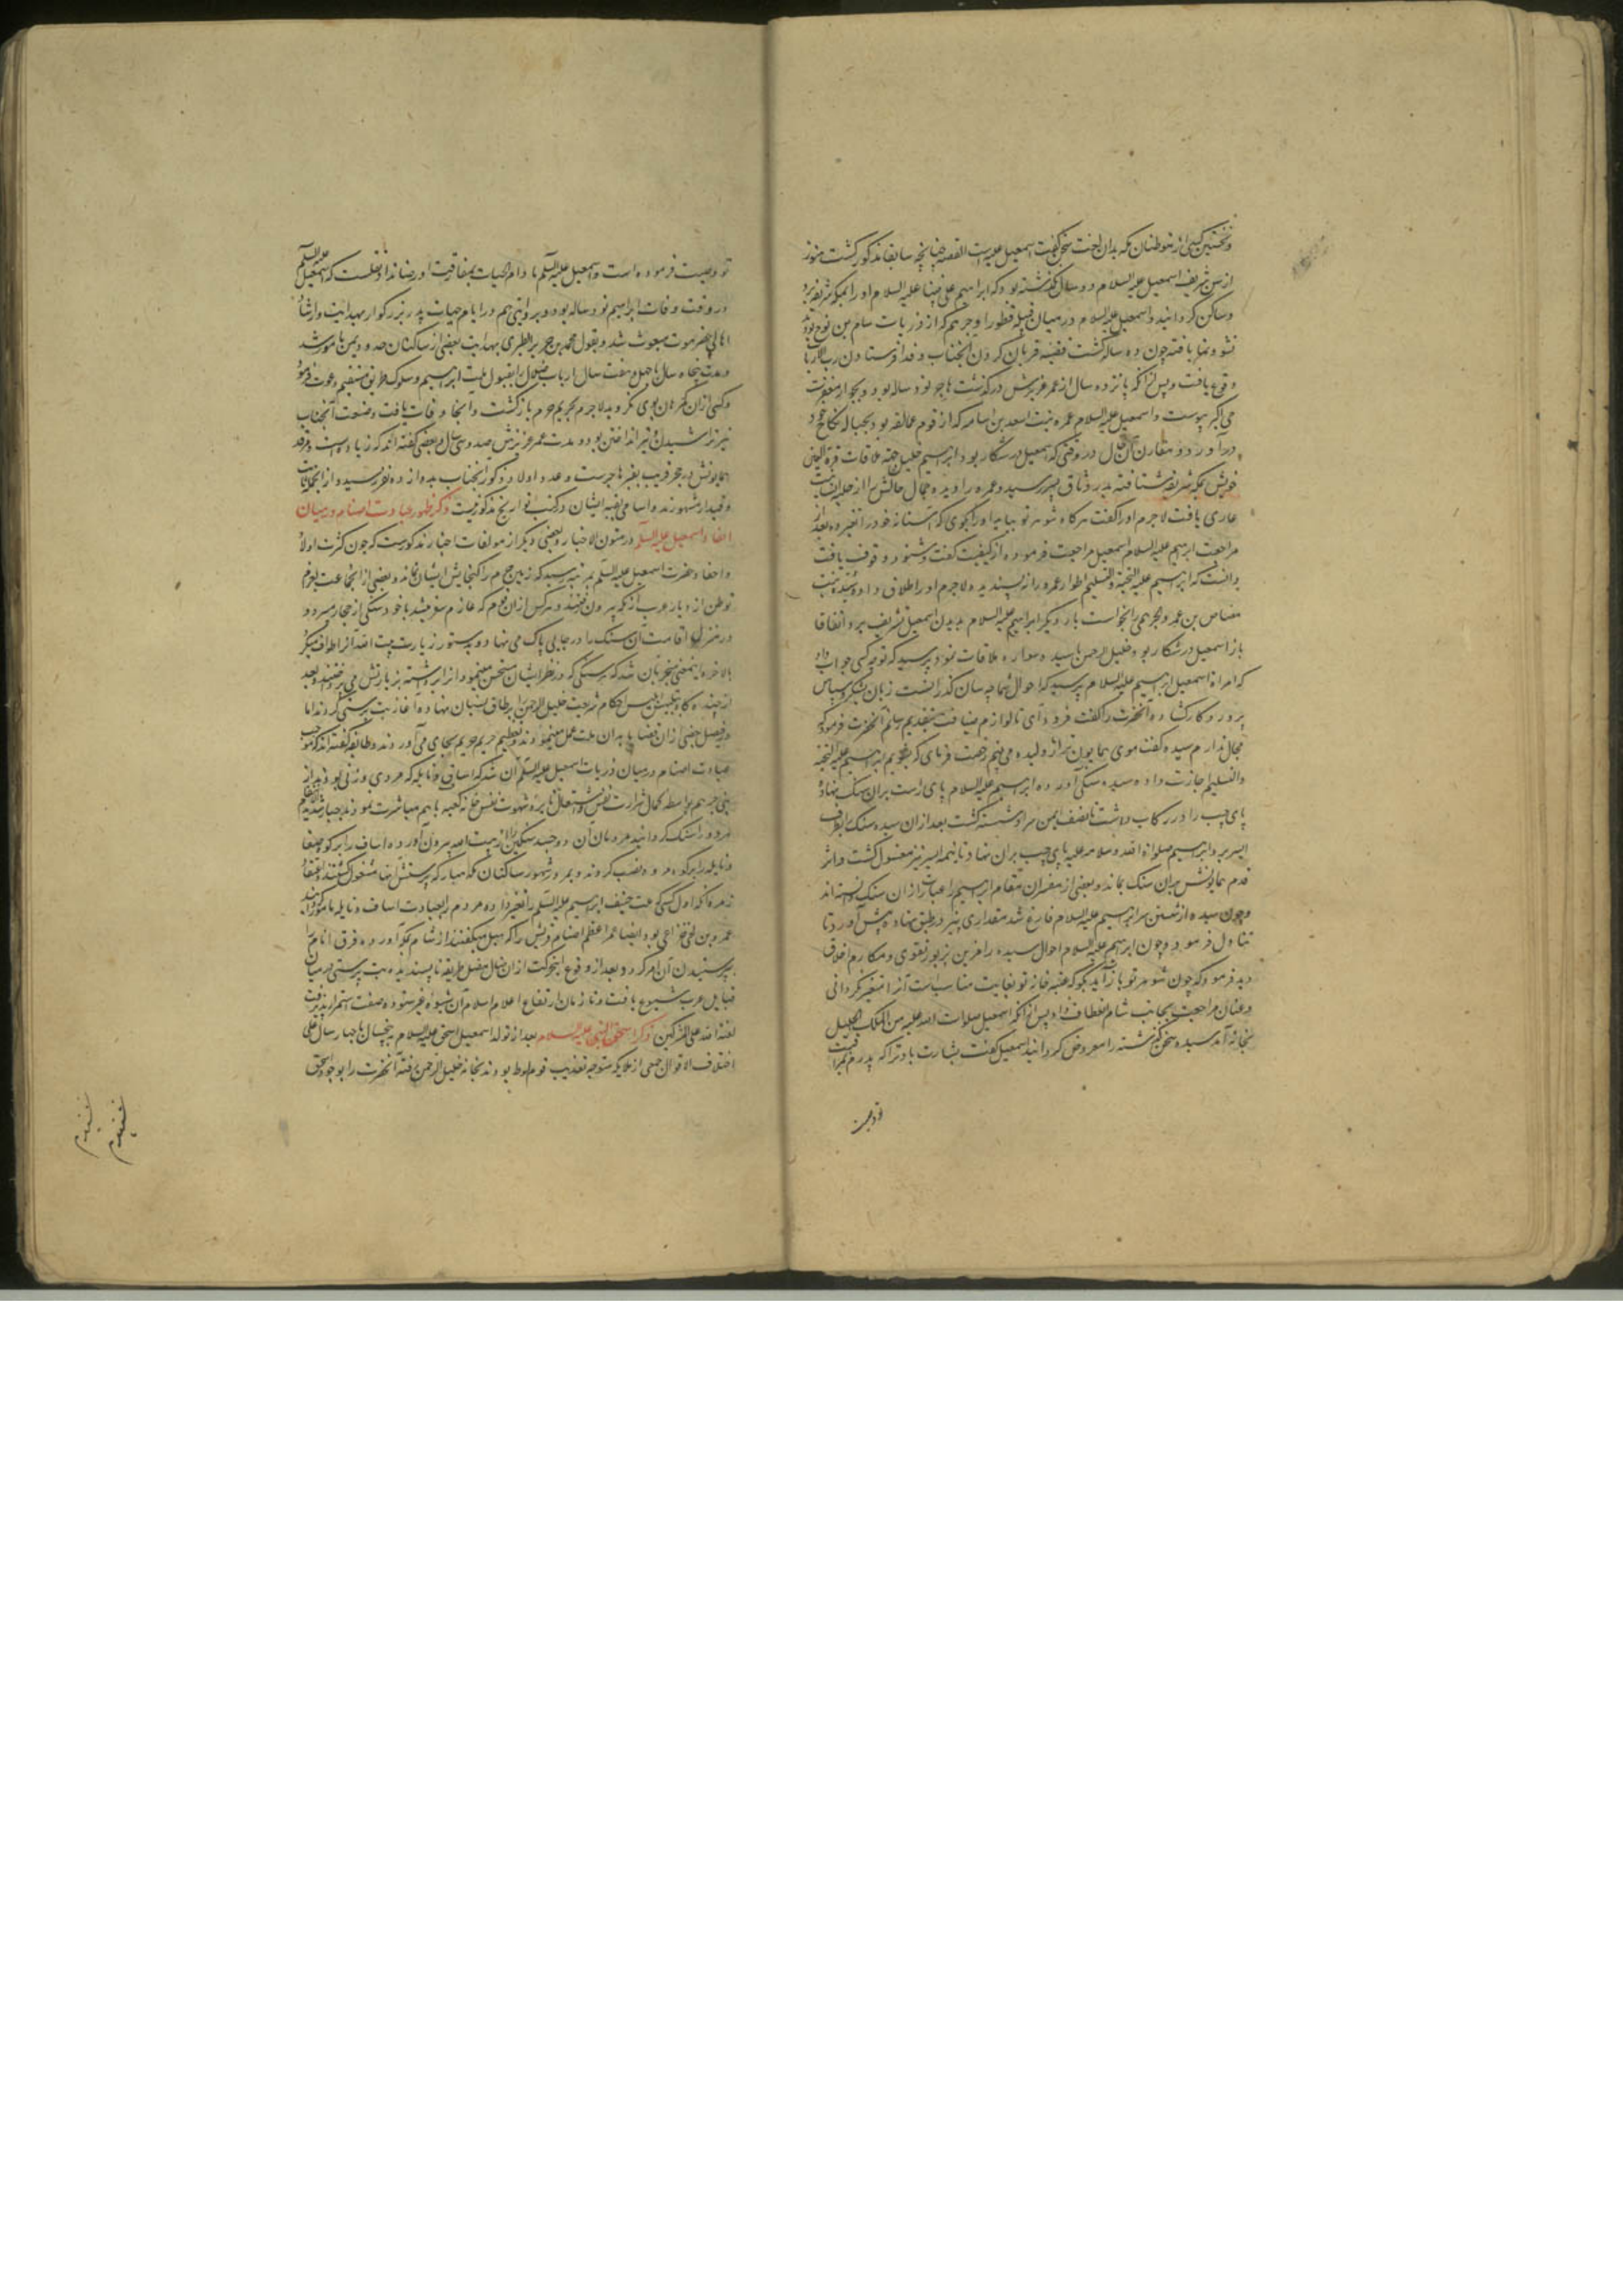 و نخستین کسی از متوطنان مکه بدان لغت سخن گفت اسمعیل علیه است القصه چنانچه سابقا مذکور گشت هنوز
از سن شریف اسمعیل علیه السلام دو سال نگذشته بود که ابراهیم علی نبینا علیه السلام او را بمکه شریفه برد
و ساکن گردانید و اسمعیل علیه السلام در میان قبیله قطورا و جرهم که از ذریات سام بن نوح بودند
نشو و نما یافته چون ده ساله گشت قضیه قربان کردن آنجناب و فدا فرستادن رب الارباب
وقوع یافت و پس از آنکه پانزده سال از عمر عزیزش درگذشت هاجر نود ساله بود و بجوار مغفرت
حی اکبر پیوست و اسمعیل علیه السلام عمره بنت اسعد بن اسامه که از قوم عمالقه بود بحباله نکاح خود
درآورد و مقارن آن حال در وقتی که اسمعیل در شکار بود ابراهیم خلیل جهة ملاقات قرة العین
خویش بمکه شریفه شتافته بدر وثاق پسر رسید و عمره را دیده جمال حالش را از حلیه انسانیت
عاری یافت لاجرم او را گفت هرکاه شوهر تو بیاید او را بگوی که آستانه خود را تغییر ده بعد از
مراجعت ابراهیم علیه السلام اسمعیل مراجعت فرموده از کیفیت گفت و شنود وقوف یافت
دانست که ابراهیم علیه التحیة و التسلیم اطوار عمره را نپسندیده لاجرم او را طلاق داد و سیده بنت
مضاض بن عمرو الجرهمی را بخواست بار دیگر ابراهیم علیه السلام بدیدن اسمعیل تشریف برد و اتفاقا
باز اسمعیل در شکار بود خلیل الرحمن با سیده سواره ملاقات نمود پرسید که تو چه کسی جواب داد
که امراة اسمعیل ابراهیم علیه السلام پرسید که احوال شما چه سان گذرانست زبان بشکر و سپاس
پروردکار گشاده آنحضرت را گفت فرود آی تا لوازم ضیافت بتقدیم رسانم آنحضرت فرمود که
مجال ندارم سیده گفت موی همایون ترا ژولیده می بینم رخصت فرمای که بشویم ابراهیم علیه التحیة
والتسلیم اجازت داده سیده سنگی آورده ابراهیم علیه السلام پای راست بران سنگ نهاد
پای چپ را در رکاب داشت تا نصف ایمن سر او شسته گشت بعد از آن سیده سنگ را بطرف
ایسر برد ابراهیم صلواة الله و سلامه علیه پای چپ بران نهاد تا نیمه ایسر نیز مغسول گشت و اثر
قدم همایونش بران سنگ بماند و بعضی از مفسران مقام ابراهیم را عبارت از آن سنگ دانسته اند
و چون سیده از شستن سر ابراهیم علیه السلام فارغ شد مقداری پنیر در طبق نهاده پیش آورد تا
تناول فرمود و چون ابراهیم علیه السلام احوال سیده را مزین بزیور تقوی و مکارم اخلاق
دید فرمود که چون شوهر تو باز آید بگو که عتبه خانه تو بغایت مناسبست آنرا متغیر نکردانی
و عنان مراجعت بجانب شام انعطاف داد پس از آنکه اسمعیل صلوات الله علیه من الملک الجلیل
بخانه آمد سیده سخن گذشته را معروض گردانید اسمعیل گفت بشارت باد ترا که پدرم مرا
تو وصیت فرموده است و اسمعیل علیه السلم مادام الحیات بمفارقت او رضا نداد و نقلست که اسمعیل علیه السلم
در وقت وفات ابراهیم نود ساله بود و بروایتی هم در ایام حیات پدر بزرگوار بهدایت و ارشاد
اهالی حضرموت مبعوث شد و بقول محمد بن جریر الطبری بهدایت بعضی از ساکنان حدود یمن مامور شد
و مدت پنجاه سال یا چهل و هفت سال ارباب ضلال را بقبول ملت ابراهیم و سلوک طریق مستقیم دعوت فرمود
و کسی از آن گمرهان بوی نگروید لاجرم بحریم حرم بازگشت و آنجا وفات یافت و صنعت آنجناب
تیر تراشیدن و تیر انداختن بود و مدت عمر عزیزش صد و سی سال و بعضی گفته اند که زیاده است و مرقد
همایونش در حجر قریب بقبر هاجرست و عدد اولاد ذکور آنجناب بدوازده نفر رسید و از آنجمله ثابت
و قیدار مشهورند و اسامی بقیه ایشان در کتب تواریخ مذکور نیست ذکر ظهور عبادت اصنام در میان
احفاد اسمعیل علیه السلم در متون الاخبار و بعضی دیگر از مولفات اخبار مذکورست که چون کثرت اولاد
و احفاد حضرت اسمعیل علیه السلم بمرتبه رسید که زمین حرم را گنجایش ایشان نماند و بعضی از آنجماعت بعزم
توطن از دیار عرب از مکه بیرون رفتند و هرکس از آن قوم که عازم سفر میشد با خود سنگی از حجار میبرد و
در منزل اقامت آن سنگ را در جایی پاک می نهاد و بدستور زیارت بیت الله آنرا طواف میکرد
بالاخره اینمعنی منجر بآن شد که هر سنگی که در نظر ایشان مستحسن مینمود آنرا برداشته بزیارتش می پرداختند و بعد
از چندگاه بتلبیس ابلیس احکام شریعت خلیل الرحمن را بر طاق نسیان نهاده آغاز بت پرستی کردند اما
در فیصل بعضی از آن قضایا بدان ملت عمل مینمودند و تعظیم حریم حرم بجای می آوردند و طائفه گفته اند که موجب
عبادت اصنام در میان ذریات اسمعیل علیه السلم آن شد که اساف و نایله که مردی و زنی بودند از
بنی جرهم بواسطه کمال شرارت نفس و اشتعال نایره شهوت نفس در خانه کعبه باهم مباشرت نمودند جبار منتقم
هر دو را سنگ گردانید مردمان آن دو جسد سنگین را از بیت الله بیرون آورده اساف را بر کوه صفا
و نایله را بر کوه مروه نصب کردند و بمرور شهور ساکنان مکه مبارکه بپرستش آنها مشغول گشتند و اتفاقا
زمره آنکه اول کسی که ملت حنیف ابراهیم علیه السلم را تغییر داده مردم را بعبادت اساف و نایله مامور گردانید
عمرو بن لحی خزاعی بود ایضا عمر اعظم اصنام قریش را که هبل میگفتند از شام بمکه آورده فرق انام را
بپرستیدن آن امر کرد و بعد از وقوع این حرکت از آن ضال مضل طریقه ناپسندیده بت پرستی در میان
قبایل عرب شیوع یافت و تا زمان ارتفاع اعلام اسلام آن شیوه غیر ستوده صفت استمرار پذیرفت
لعنة الله علی المشرکین ذکر اسحق النبی علیه السلام بعد از تولد اسمعیل اسحق علیه السلام به پنجسال یا چهار سال علی
اختلاف الاقوال جمعی از ملایکه متوجه تعذیب قوم لوط بودند بخانه خلیل الرحمن رفته آنحضرت را بوجود اسحق